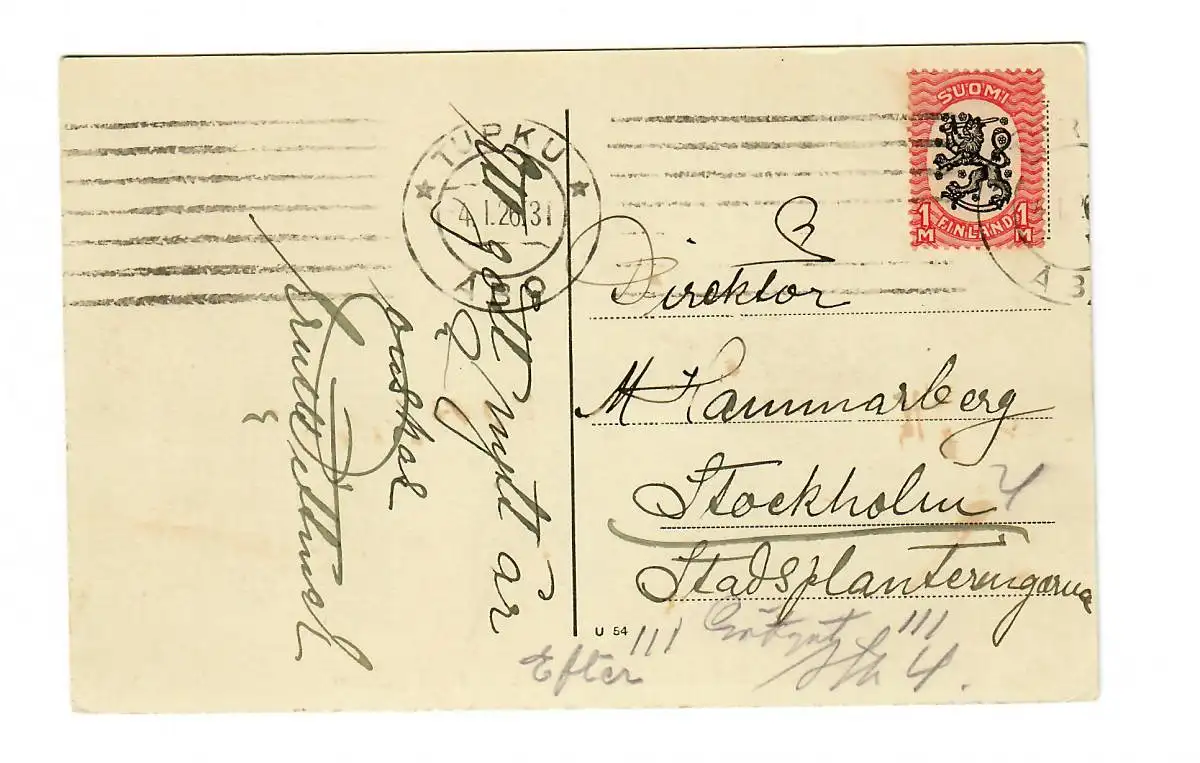 TURKU
4.I.26 31
ÅBO
SUOMI
1 M FINLAND 1 M
Ett gott nytt år
önskar
Direktor
M Hammarberg
Stockholm 4
Stadsplanteringarna
U 54
III III
Efter Sth 4.